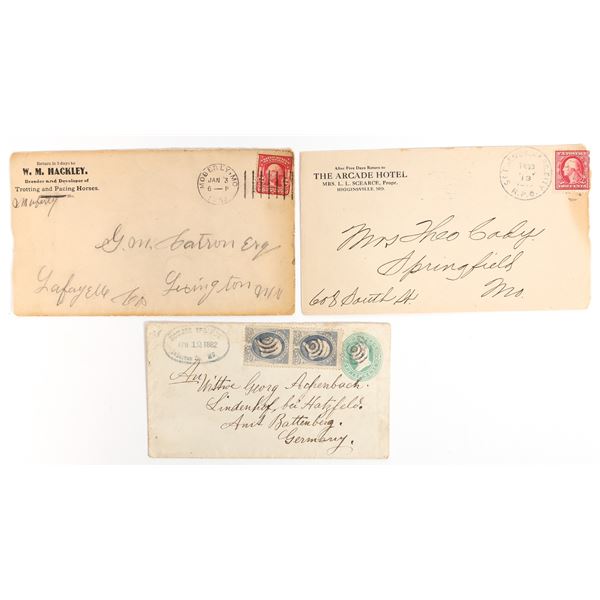 Return in 5 days to
W. M. HACKLEY,
Breeder and Developer of
Trotting and Pacing Horses.
Moberly
MOBERLY, MO.
JAN 3
6 – P
G. M. Catron Esq
Lafayette Co
Lexington Mo
After Five Days Return to
THE ARCADE HOTEL
MRS. L. L. SCEARCE, Propr.
HIGGINSVILLE, MO.
R.P.O.
TWO CENTS
Mrs Theo Coby.
Springfield
608 South St.
Mo.
1882
MO
An
Wittwe Georg Achenbach.
Lindenhof, bei Hatzfeld.
Amt Battenberg.
Germany.